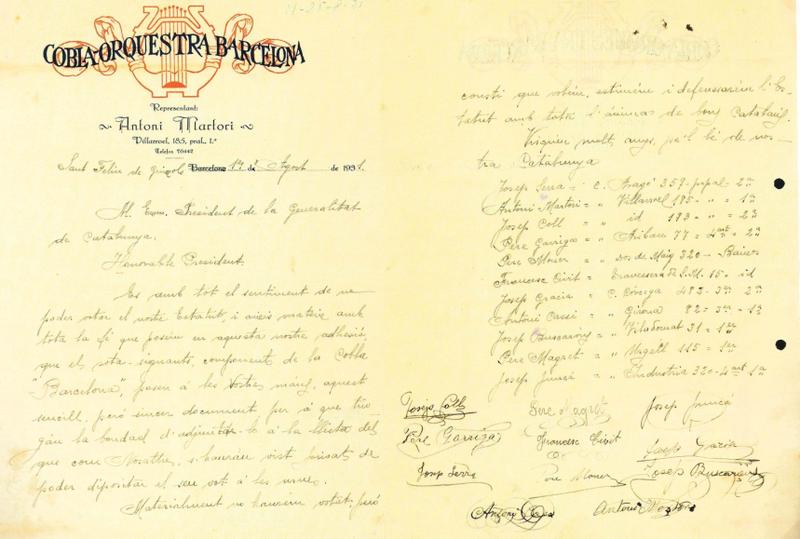 COBLA-ORQUESTRA BARCELONA
Representant:
Antoni Martori
Villarroel, 185, pral., 1.ª
Telefon 76442
Sant Feliu de Guíxols Barcelona 1er d' Agost de 1931.
M. Exm. President de la Generalitat
de Catalunya.
Honorable President:
Es amb tot el sentiment de no
poder votar el nostre Estatut, i aixís mateix amb
tota la fé que posem en aquesta nostre adhesió,
que el sota-signants, component de la Cobla
"Barcelona", posen á les Vostres mans, aquest
sencill, peró sincer document per á que
la bondad d'adjuntar-lo á la llista dels
que com Nosaltres, s'hauràn vist privats de
poder dipositar el seu vot á les urnes.
Materialment no haurém votat; peró
consti que volém, estimém i defensarém l'Es-
tatut amb tota l'ánima de bons Catalans.
Visqueu molts anys, pe'l bé de nos-
tra Catalunya
Josep Serra = C. Aragó 359-pripal 2ª
Antoni Martori = " Villarroel 185 " = 1ª
Josep Coll = " id 183 " = 2ª
Pere Garriga = " Aribau 77 = 4art = 2ª
Pere Moner = " Dos de Maig 320 - Baixos
Francesc Civit = Travessera 15 - id
Josep Gracia = C. Còrcega 483 - 3er 2ª
Antoni Cassi = " Girona 82 = 3er - 1ª
Josep Buscarons = " Viladomat 31 = 1er
Pere Magret = " Urgell 115 = 1er
Josep Juncá = " Industria 320-4art 1ª
Josep Coll Pere Magret Josep Juncá
Pere Garriga Francesc Civit Josep Gracia
Josep Serra Pere Moner Josep Buscarons
Antoni Cassi Antoni Martori